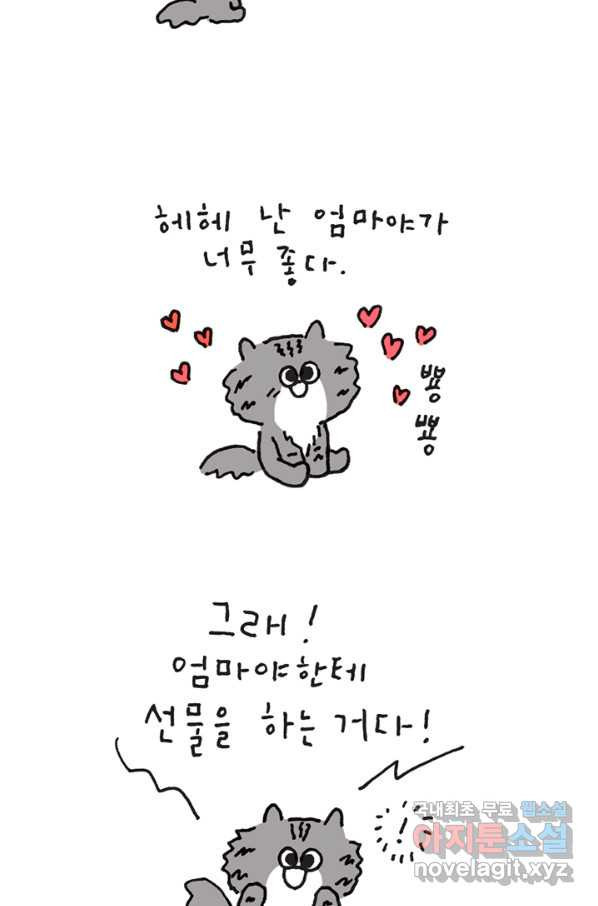 헤헤 난 엄마야가
너무 좋다.
뿅
뿅
그래!
엄마야한테
선물을 하는거다!
!
국내최초 무료 웹소설
아지툰소설
novelagit.xyz